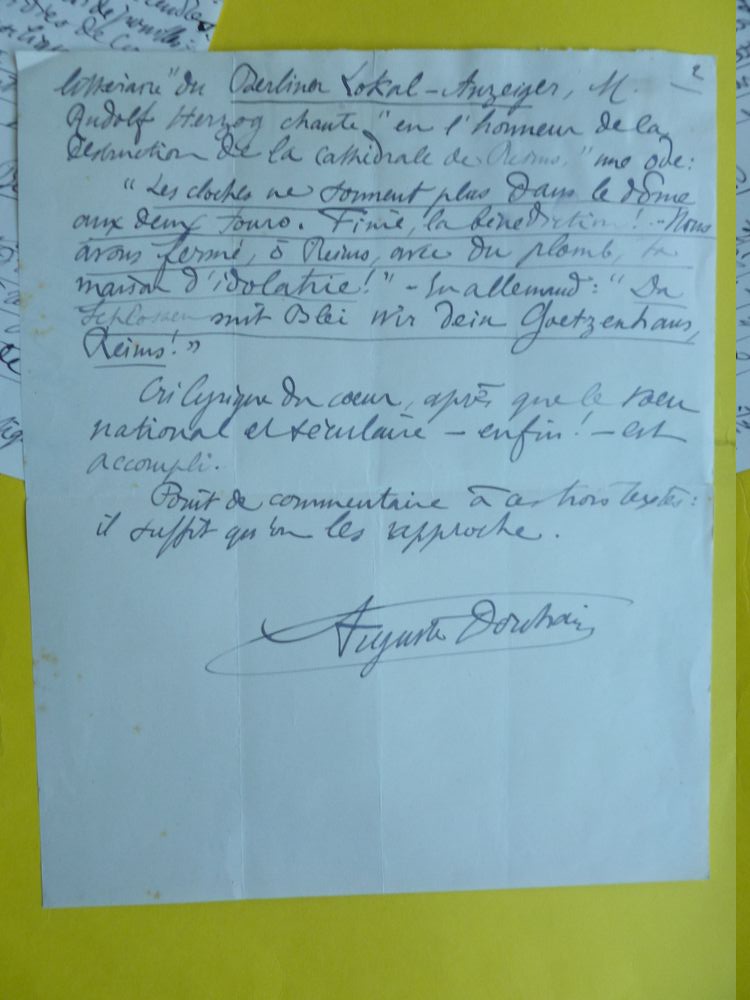 2
littéraire" du Berliner Lokal-Anzeiger, M.
Rudolf Herzog chante "en l'honneur de la
destruction de la cathédrale de Reims," une ode:
"Les cloches ne sonnent plus dans le dôme
aux deux tours. Finie, la bénédiction! - Nous
avons fermé, ô Reims, avec du plomb, ta
maison d'idolatrie!" - En allemand: "Da
schlossen mit Blei wir dein Goetzenhaus,
Reims!"
Cri lyrique du cœur, après que le vœu
national et séculaire - enfin! - est
accompli.
Point de commentaire à ces trois textes:
il suffit qu'on les rapproche.
Auguste Dorchain